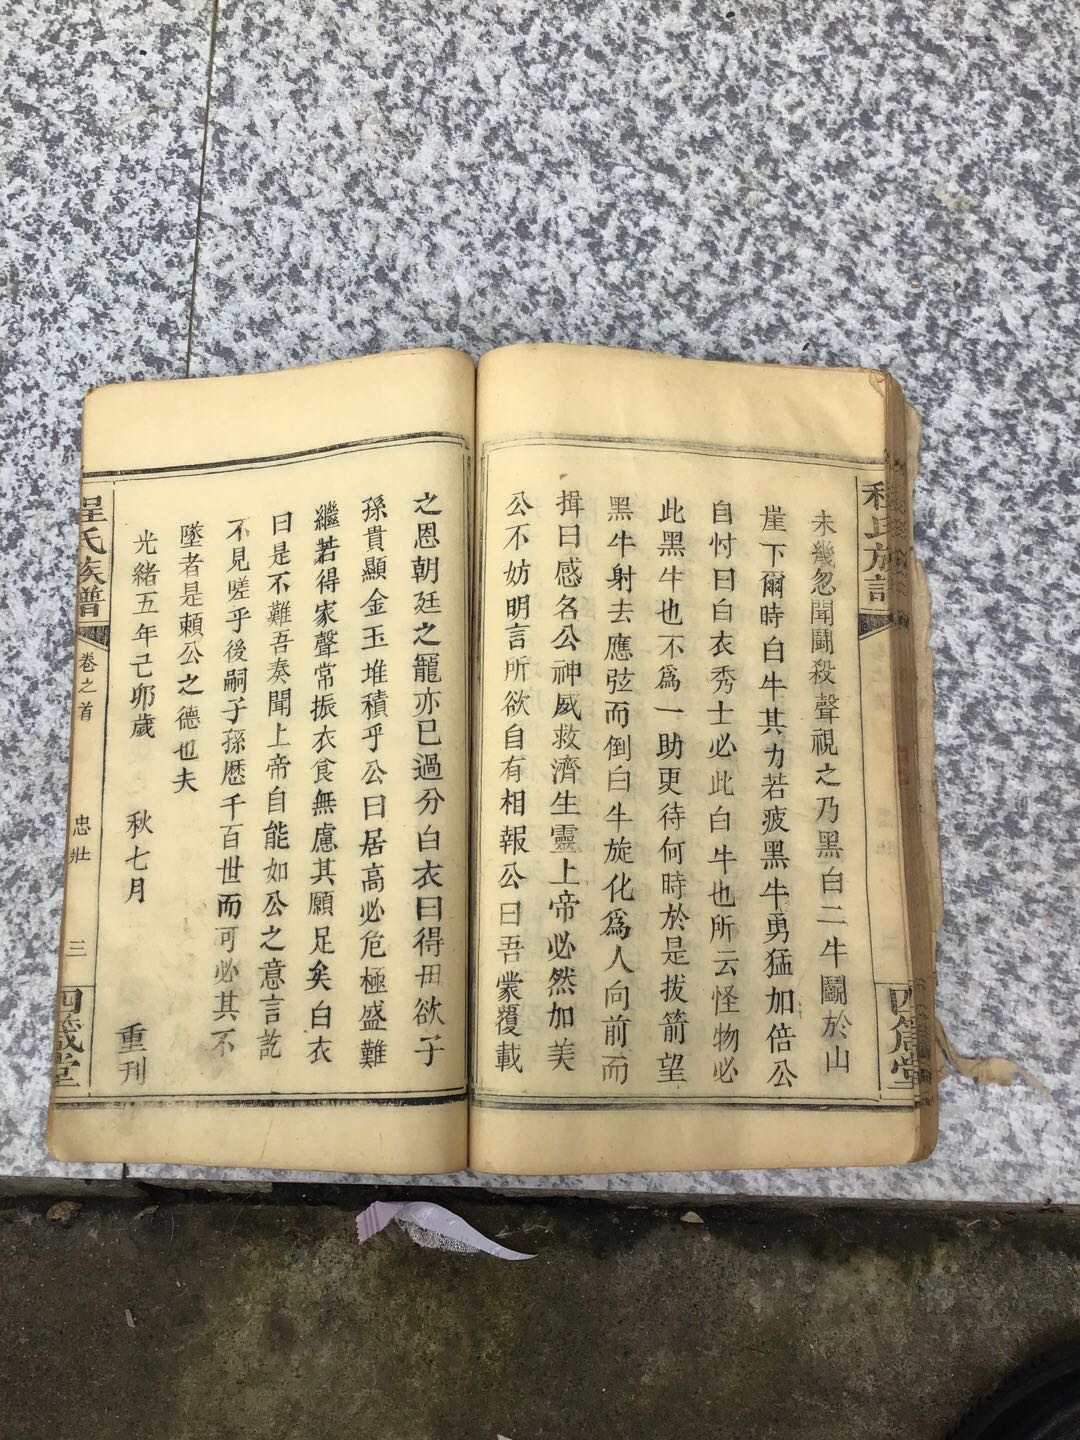 程氏族譜
四箴堂
未幾忽聞鬪殺聲視之乃黑白二牛鬪於山
崖下爾時白牛其力若疲黑牛勇猛加倍公
自忖曰白衣秀士必此白牛也所云怪物必
此黑牛也不爲一助更待何時於是拔箭望
黑牛射去應弦而倒白牛旋化爲人向前而
揖曰感名公神威救濟生靈上帝必然加美
公不妨明言所欲自有相報公曰吾蒙覆載
之恩朝廷之寵亦已過分白衣曰得毋欲子
孫貴顯金玉堆積乎公曰居高必危極盛難
繼若得家聲常振衣食無慮其願足矣白衣
曰是不難吾奏聞上帝自能如公之意言訖
不見嗟乎後嗣子孫歷千百世而可必其不
墜者是賴公之德也夫
光緒五年己卯歲 秋七月 重刊
程氏族譜 卷之首 忠壯 三 四箴堂